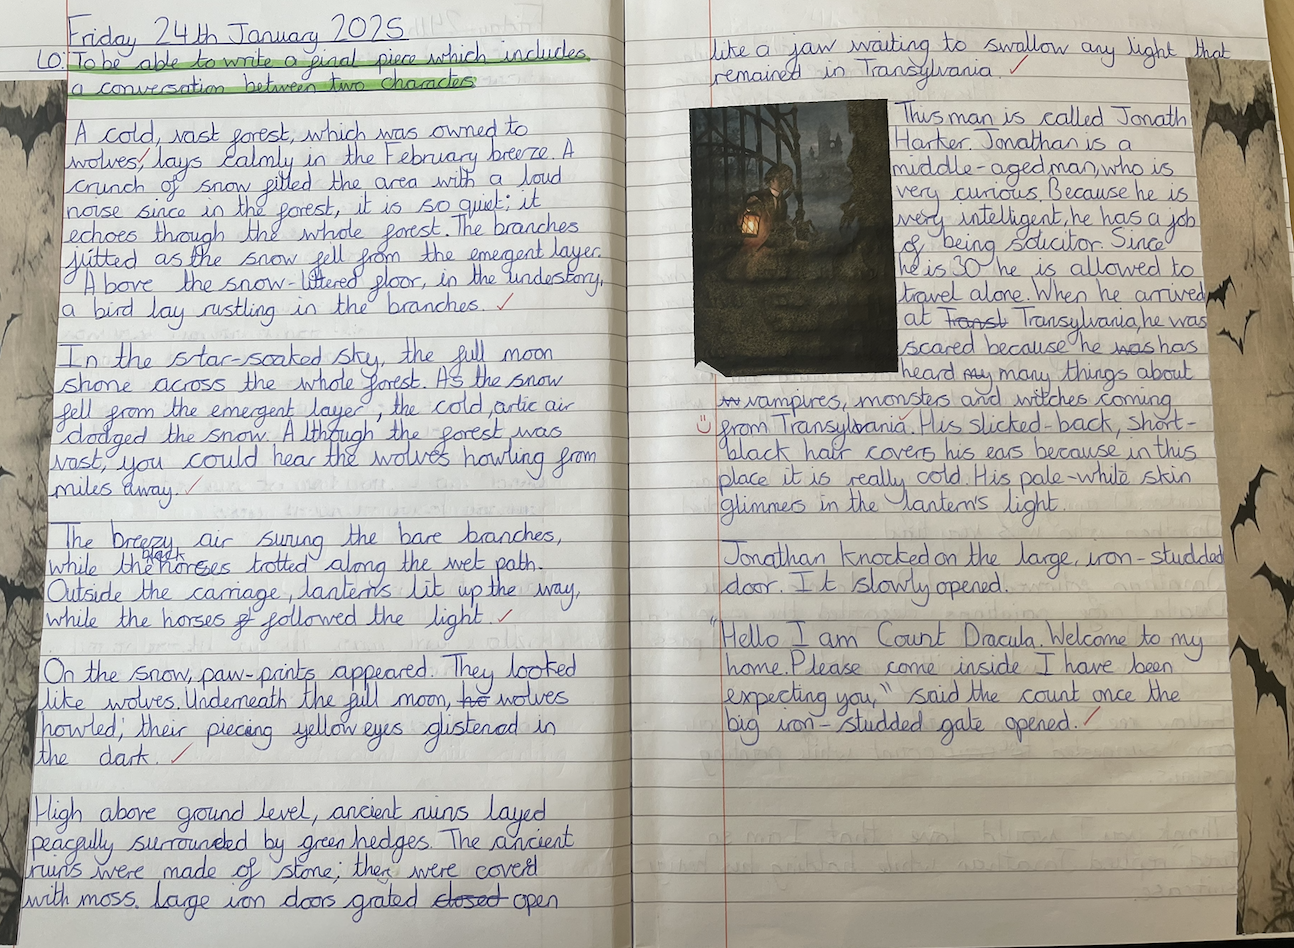 Friday 24th January 2025
LO: To be able to write a final piece which includes
a conversation between two characters
A cold, vast forest, which was owned to
wolves, lays calmly in the February breeze. A
crunch of snow filled the area with a loud
noise since in the forest, it is so quiet; it
echoes through the whole forest. The branches
jutted as the snow fell from the emergent layer.
Above the snow-littered floor, in the understory,
a bird lay rustling in the branches.
In the star-soaked sky, the full moon
shone across the whole forest. As the snow
fell from the emergent layer, the cold, artic air
dodged the snow. Although the forest was
vast, you could hear the wolves howling from
miles away.
The breezy air swung the bare branches,
while the black horses trotted along the wet path.
Outside the carriage, lanterns lit up the way,
while the horses followed the light.
On the snow, paw-prints appeared. They looked
like wolves. Underneath the full moon, wolves
howled; their piecing yellow eyes glistened in
the dark.
High above ground level, ancient ruins layed
peacfully surrounded by green hedges. The ancient
ruins were made of stone; they were coverd
with moss. Large iron doors grated closed open
like a jaw waiting to swallow any light that
remained in Transylvania.
This man is called Jonath
Harker. Jonathan is a
middle-aged man, who is
very curious. Because he is
very intelligent, he has a job
of being solicitor. Since
he is 30 he is allowed to
travel alone. When he arrived
at Transt Transylvania, he was
scared because he was has
heard my many things about
vampires, monsters and witches coming
from Transylvania. His slicked-back, short-
black hair covers his ears because in this
place it is really cold. His pale-white skin
glimmers in the lantern's light.
Jonathan knocked on the large, iron-studded
door. It slowly opened.
"Hello I am Count Dracula. Welcome to my
home. Please come inside I have been
expecting you," said the count once the
big iron-studded gate opened.